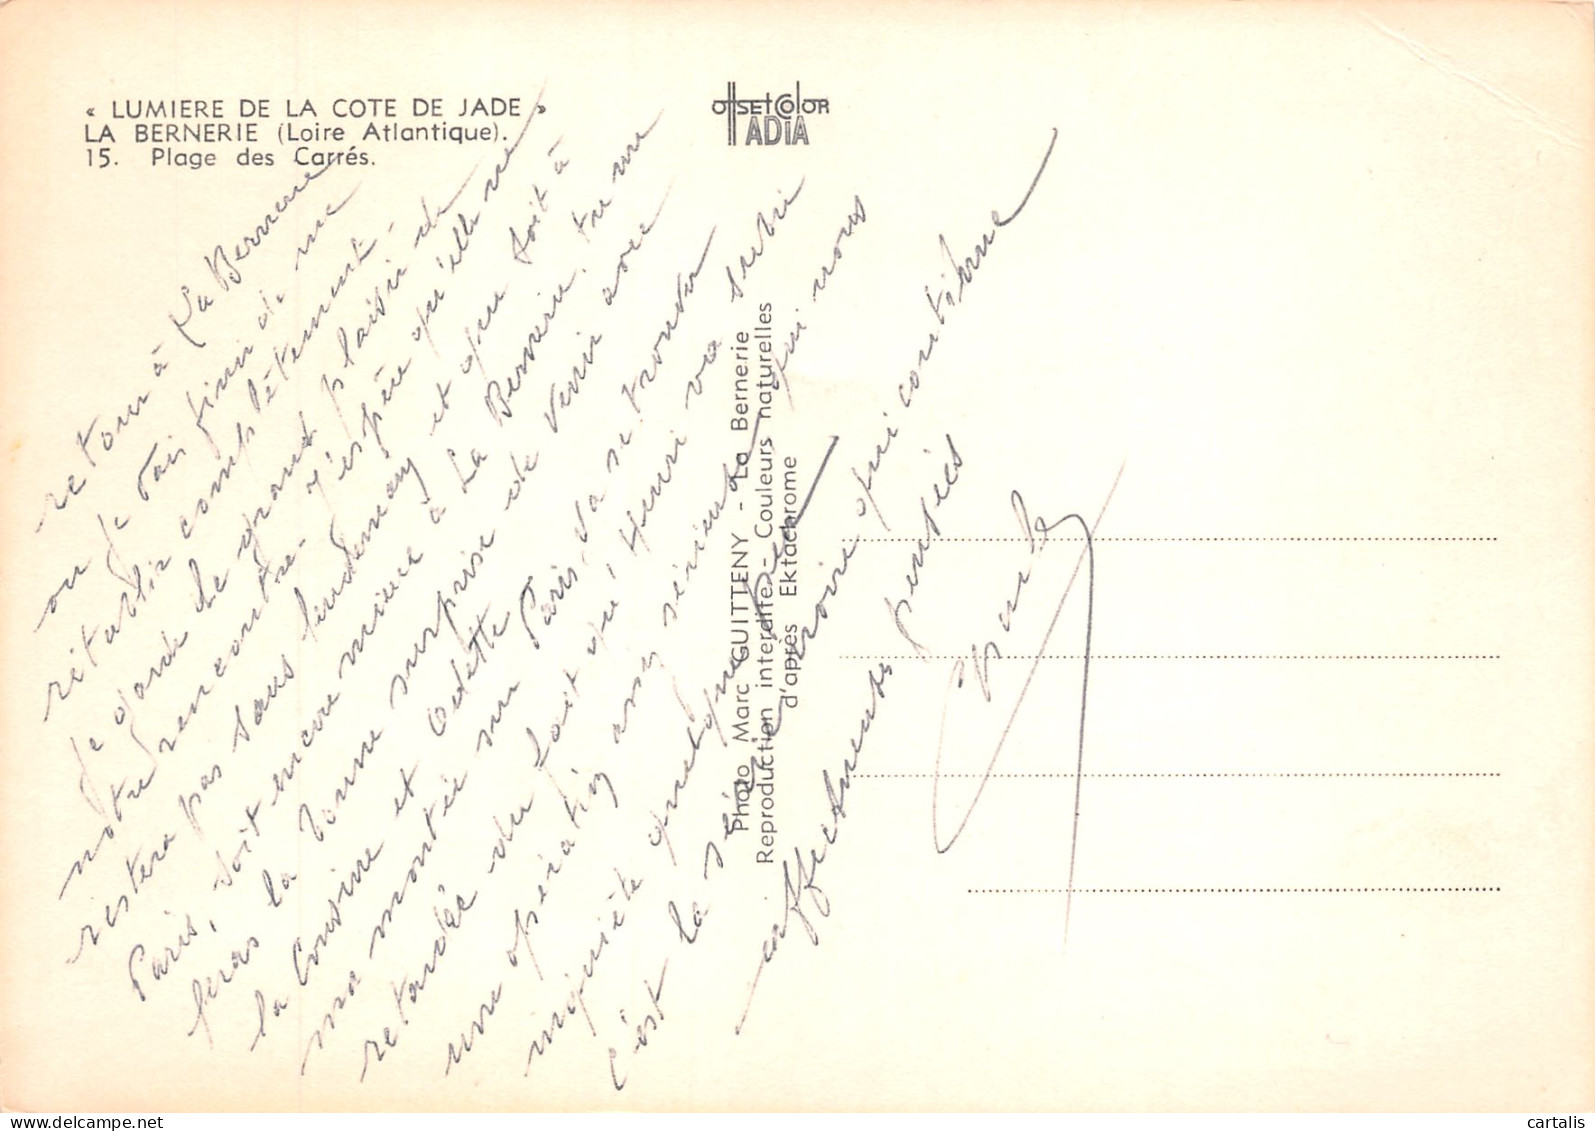 « LUMIERE DE LA COTE DE JADE »
LA BERNERIE (Loire Atlantique).
15. Plage des Carrés.
offsetcolor
ADIA
retour à La Bernerie
ou je vais finir de me
rétablir complètement -
Je garde le grand plaisir de
notre rencontre. J'espère qu'elle ne
restera pas sans lendemain et que soit à
Paris, soit encore mieux à La Bernerie, tu me
feras la bonne surprise de venir avec
la Cousine et Odette
ma montée sur Paris va se trouver
retardée du fait que, Henri va subir
une opération assez sérieuse qui nous
inquiète quelque peu
c'est la série noire qui continue
affectueuses pensées
Photo Marc GUITTENY - La Bernerie
Reproduction interdite - Couleurs naturelles
d'après Ektachrome
cartalis